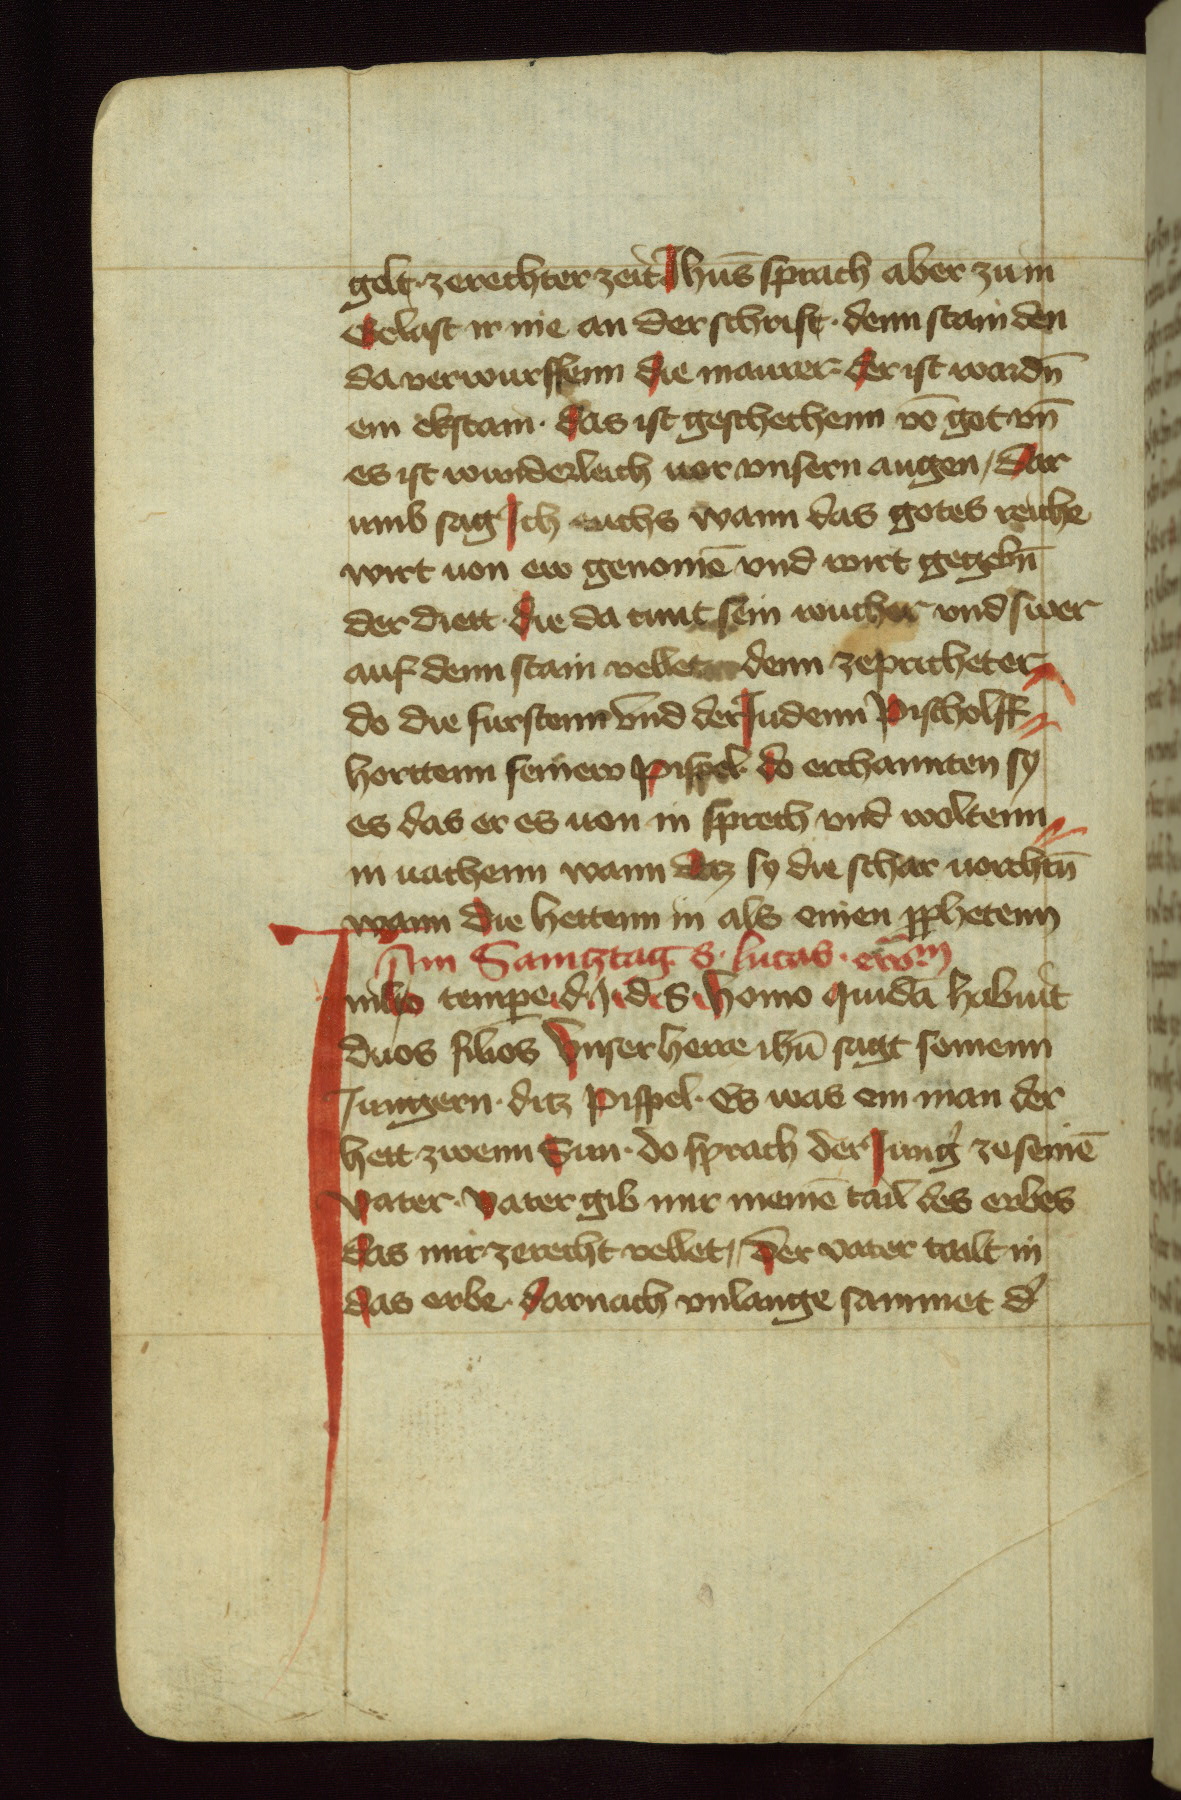 gelt · ze rechter zeit Jhus̄ sprach aber zu in
Gelast ir nie an der schrift · denn stain den
da verwurffenn die maurer · der ist wordn̄
ein ekstain · das ist geschechenn vō got vn̄
es ist wunderleich vor vnsern augen / Dar
umb sag Ich euchs wann das gotes reiche
wirt von ew genomē vnd wirt gegebn̄
der diett · die da tunt sein wucher vnd swer
auf denn stain vellet denn zepricheter
do die furstenn vnd der Judenn Pischolff
horttenn seinew Pispel · do erchannten sy
es das er es von in sprech vnd woltenn
in vachenn wann daz sy die schar vorchtn̄
wann die hettenn in als einen pphetenn
Am Samztag S · lucas · ewm̄
In illo tempe · d · J · d · S · Homo quidā habuit
duos filios Vnser herre ihū sagt seinenn
Jungern · ditz Pispel · Es was ein man der
hett zwenn Sun · do sprach der Jung̾ ze seinē
Vater · Vater gib mir meinē tail des erbes
das mir ze recht vellet / Der vater tailt in
das erbe · darnach vnlange sammet d̾